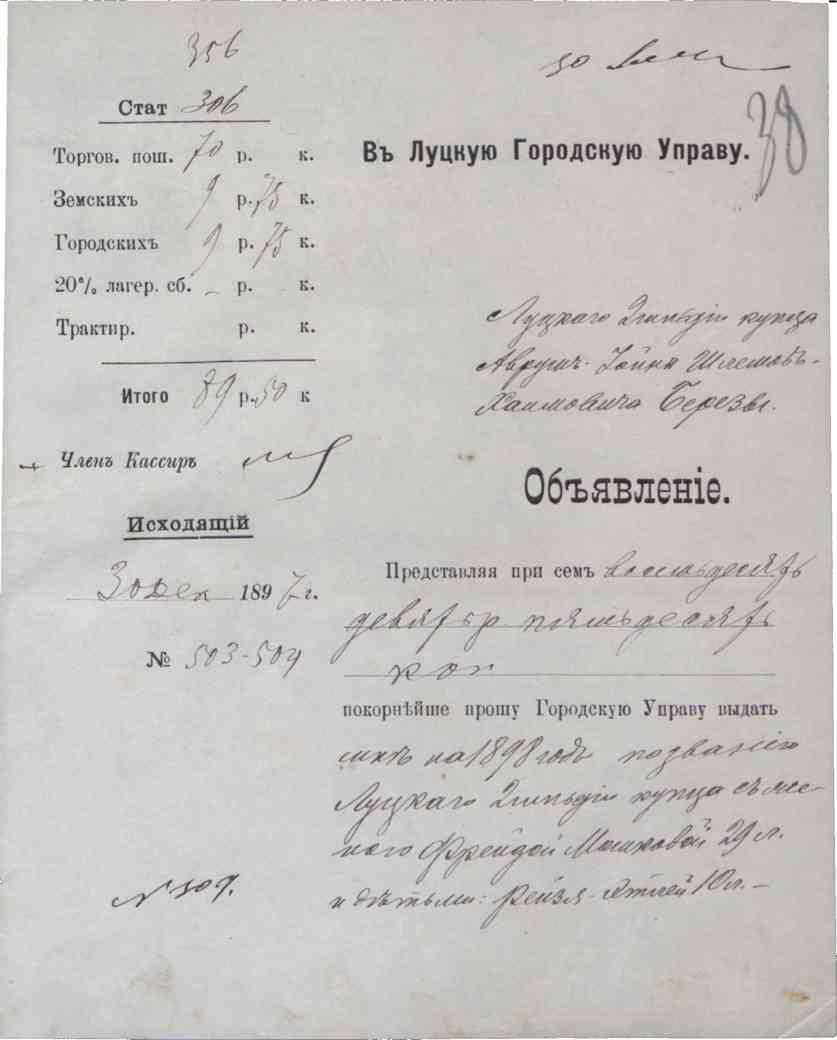 356
Стат 306
Торгов. пош. 70 р. к.
Земскихъ 9 р. 75 к.
Городскихъ 9 р. 75 к.
20% лагер. сб. - р. к.
Трактир. р. к.
Итого 89 р. 50 к
Членъ Кассиръ
Исходящій
30 Дек 1897 г.
№ 503-504
N 309.
30
38
Въ Луцкую Городскую Управу.
Луцкаго 2 гильдіи купца
Аврума-Іойна Шлемовъ-
Хаимовича Березы.
Объявленіе.
Представляя при семъ восемьдесятъ
девять р пятьдесятъ
коп
покорнѣйше прошу Городскую Управу выдать
мнѣ на 1898 годъ по званію
Луцкаго 2 гильдіи купца съ же-
ною Фрейдой Мошковой 29 л.
и дѣтьми: Рейзя-Этлей 10 л. -